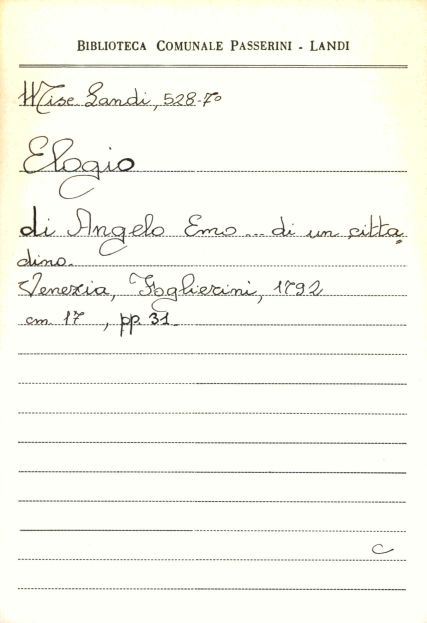 BIBLIOTECA COMUNALE PASSERINI - LANDI
Misc. Landi, 528-70
Elogio
di Angelo Emo ... di un citta
dino.
Venezia, Foglierini, 1792
cm. 17 , pp. 31.
C